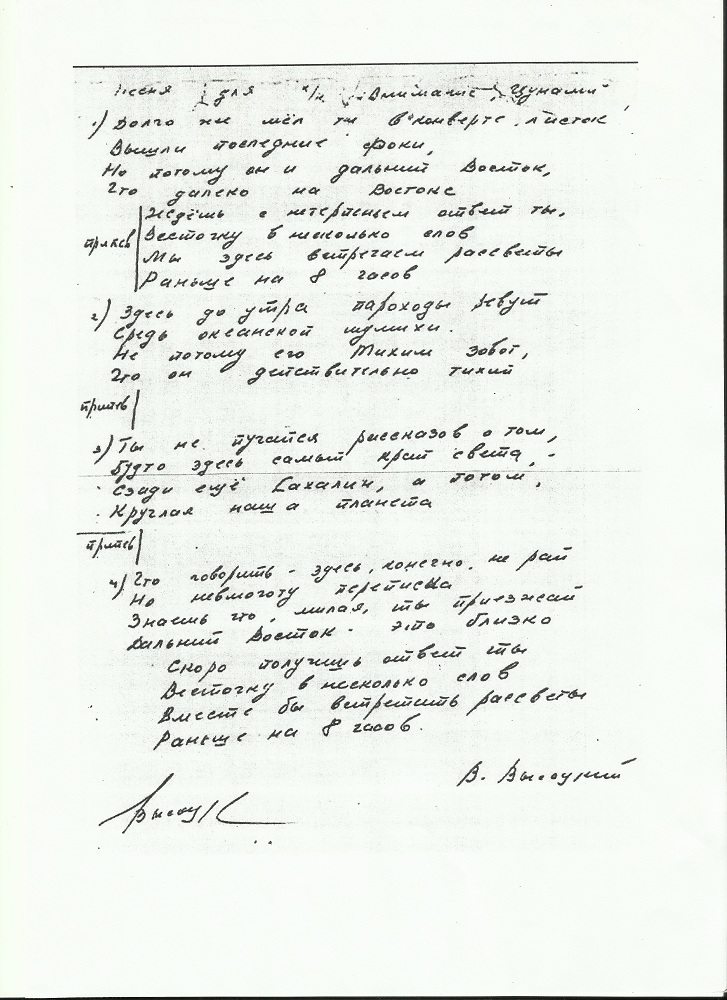 Песня для к/к "Внимание, Цунами"
1) Долго же шёл ты в конверте, листок,
Вышли последние сроки,
Но потому он и дальний Восток,
Что далеко на Востоке
Ждёшь с нетерпеньем ответ ты.
припев Весточку в несколько слов
Мы здесь встречаем рассветы
Раньше на 8 часов
2) Здесь до утра пароходы ревут
Средь океанской шумихи.
Не потому его Тихим зовут,
Что он действительно тихий
припев
3) Ты не пугайся рассказов о том,
Будто здесь самый край света, -
Сзади ещё Сахалин, а потом,
Круглая наша планета
припев
4) Что говорить - здесь, конечно, не рай
Но невмоготу переписка
Знаешь что, милая, ты приезжай
Дальний Восток - это близко
Скоро получишь ответ ты
Весточку в несколько слов
Вместе бы встретить рассветы
Раньше на 8 часов.
В. Высоцкий